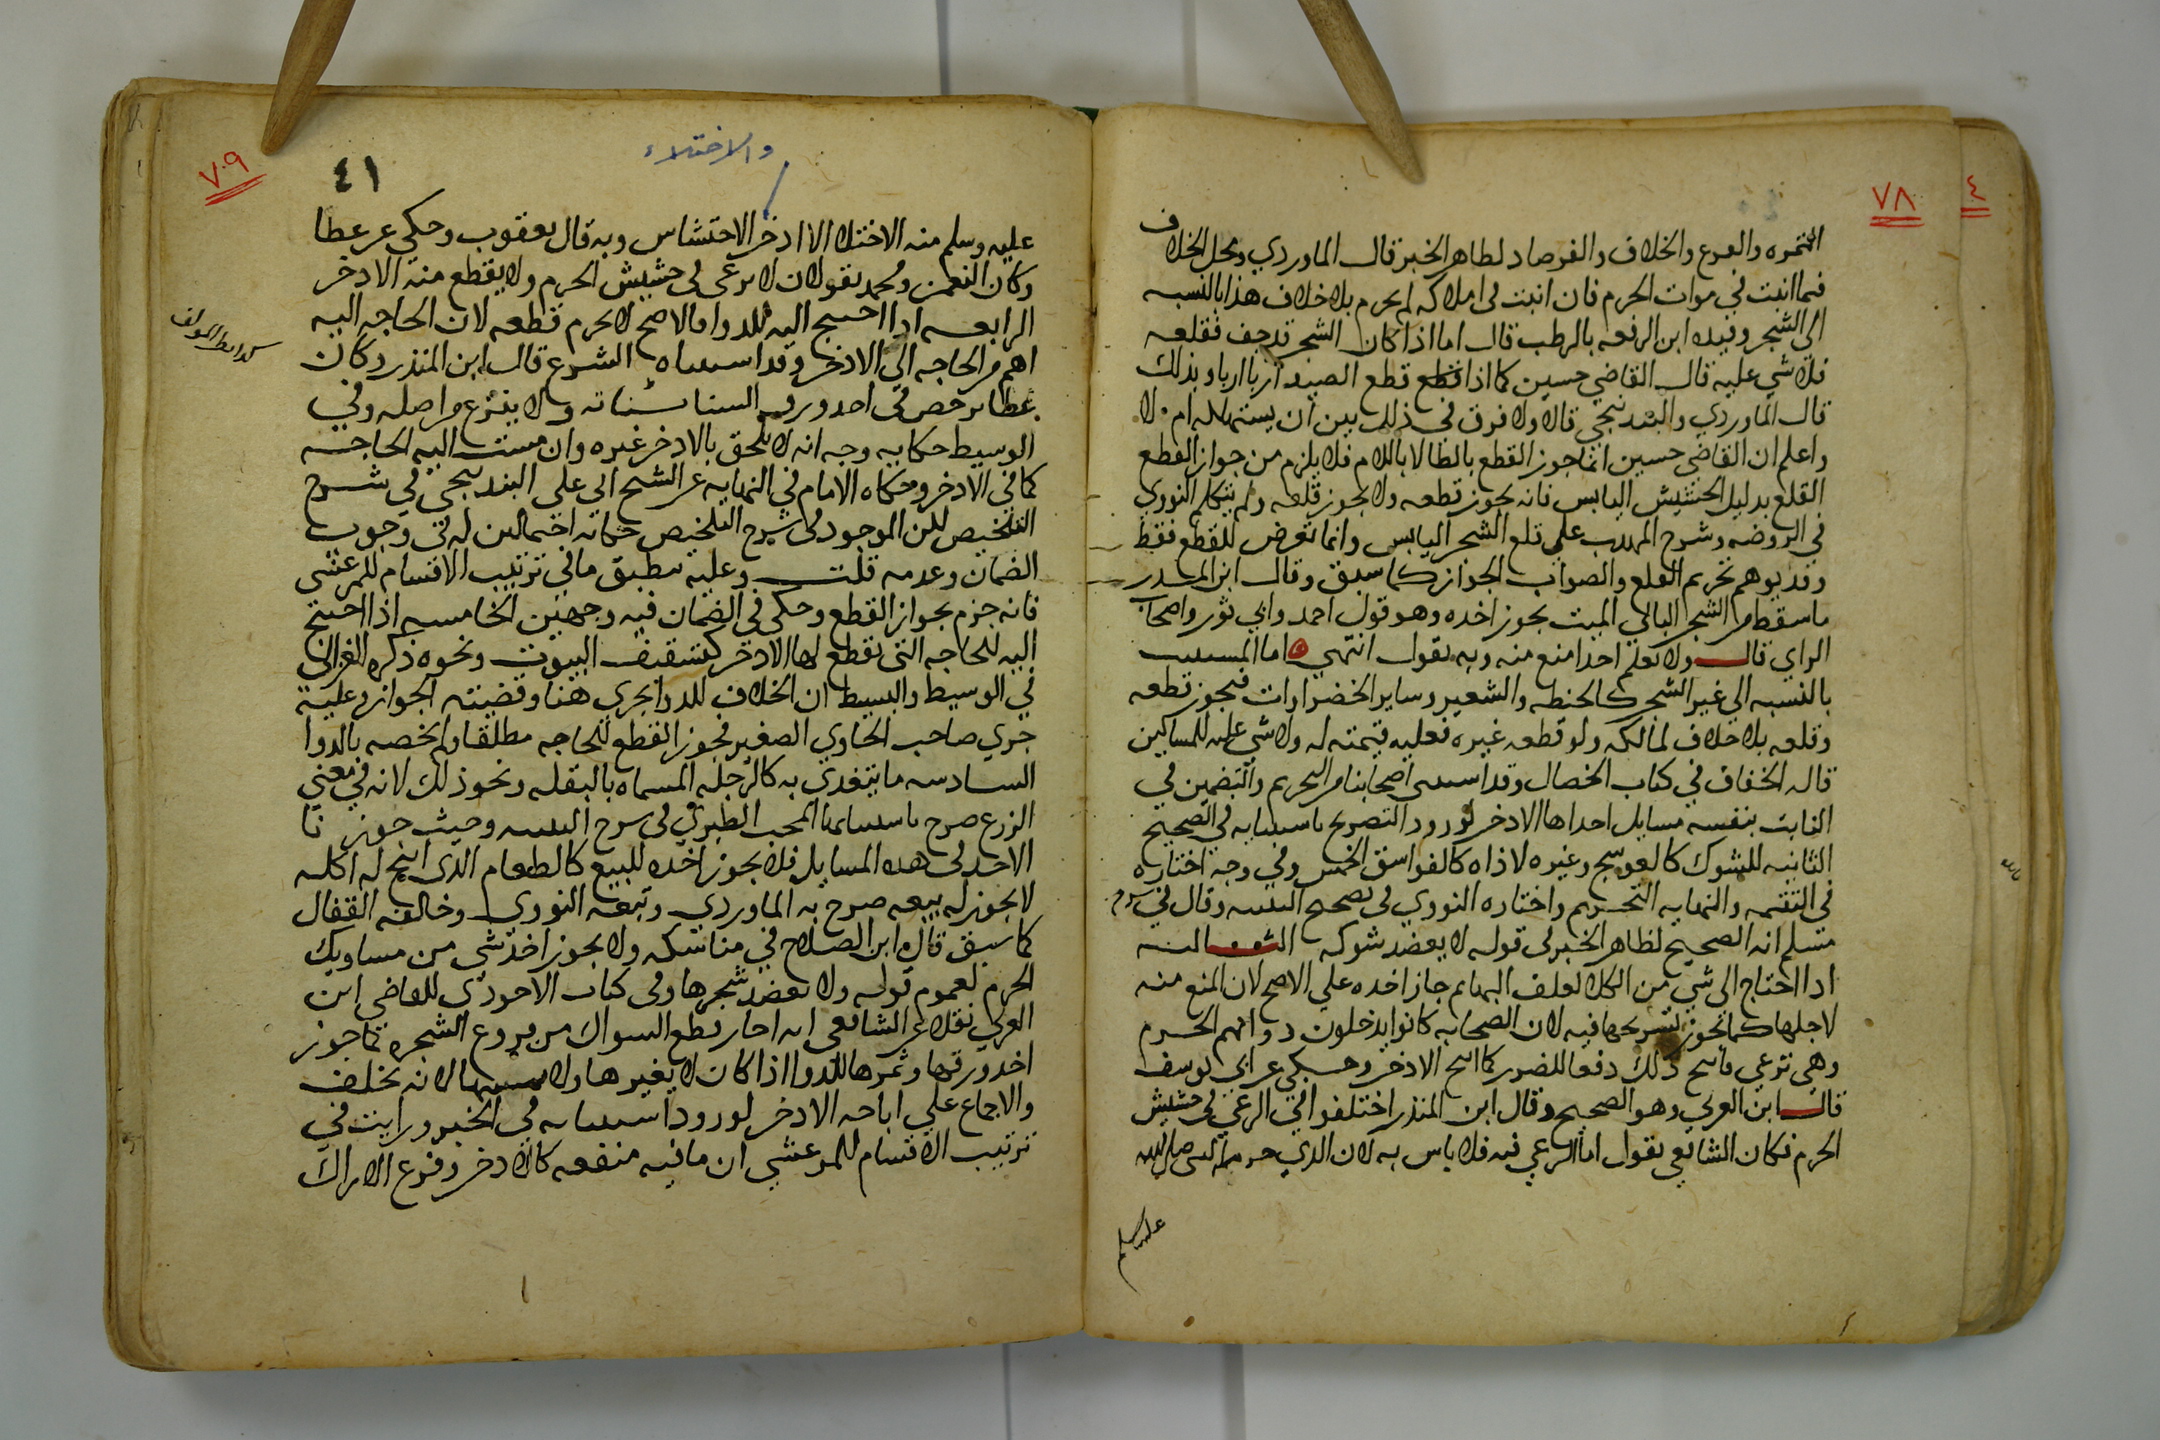 ٤
٧٨
المثمره والفرع والخلاف والفرصاد لظاهر الخبر قال الماوردي ومحل الخلاف
فما انبت في موات الحرم فان انبت في املاكه لم يحرم بلا خلاف هذا بالنسبه
الى الشجر وقيده ابن الرفعه بالرطب قال اما اذا كان الشجر قد جف فقلعه
فلا شي عليه قال القاضي حسين كما اذا قطع الصيد اربا اربا وبذلك
قال الماوردي والبندنيجي قالا ولا فرق في ذلك بين ان يستهلكه ام لا
واعلم ان القاضي حسين انما جوز القطع بالطا لا باللام فلا يلزم من جواز القطع
القلع بدليل الحشيش اليابس فانه يجوز قطعه ولا يجوز قلعه ولم يتكلم النووي
في الروضه وشرح المهدب على قلع الشجر اليابس وانما تعرض للقطع فقط
وقد يوهم تحريم القلع والصواب الجواز كما سبق وقال ابن المندر
ما سقط من الشجر البالي الميت يجوز اخده وهو قول احمد وابي ثور واصحاب
الراي قال ولا نعلم احدا منع منه وبه نقول انتهي ه اما المستنبت
بالنسبه الى غير الشجر كالحنطه والشعير وساير الخضراوات فيجوز قطعه
وقلعه بلا خلاف لمالكه ولو قطعه غيره فعليه قيمته له ولا شي عليه للمساكين
قاله الخفاف في كتاب الخصال وقد استثنى اصحابنا من التحريم والتضمين في
النابت بنفسه مسايل احداها الادخر لورود التصريح باستثنايه في الصحيح
الثانيه للشوك كالعوسج وغيره لاذاه كالفواسق الخمس وفي وجه اختاره
في التتمه والنهايه التحريم واختاره النووي في تصحيح التنبيه وقال في شرح
مسلم انه الصحيح لظاهر الخبر في قوله لا يعضد شوكه الثالثه
ادا احتاج الى شي من الكلا لعلف البهايم جاز اخده علي الاصح لان المنع منه
لاجلها كما يجوز تسريحها فيه لان الصحابه كانوا يدخلون دوابهم الحرم
وهي ترعي فابيح ذلك دفعا للضرر كما ابيح الادخر وحكي عن ابي يوسف
قال ابن العربي وهو الصحيح وقال ابن المنذر اختلفوا في الرعي في حشيش
الحرم فكان الشافعي يقول اما الرعي فيه فلا باس به لان الدي حرمه النبي صلى الله
عليه وسلم
٧٠٩
٤١
والاختلاء
عليه وسلم منه الاختلا الا ادخر الاحتشاس وبه قال يعقوب وحكي عن عطا
وكان النعمن ومحمد يقولان لا يرعى في حشيش الحرم ولا يقطع منه الادخر
الرابعه ادا احتيج اليه للدوا فالاصح لا يحرم قطعه لان الحاجه اليه
اهم من الحاجه الى الادخر وقد استثناه الشرع قال ابن المنذر وكان
عطا يرخص في اخد ورق السنا ولا ينزع من اصله وفي
الوسيط حكايه وجه انه لا يلحق بالادخر غيره وان مست اليه الحاجه
كما في الادخر وحكاه الامام في النهايه عن الشيخ ابي علي البندنيجي في شرح
التلخيص لكن الموجود في شرح التلخيص حكايه احتمالين له في وجوب
الضمان وعدمه قلت وعليه ينطبق ما في ترتيب الاقسام للمرعشي
فانه جزم بجواز القطع وحكي في الضمان فيه وجهين الخامسه اذا احتيج
اليه للحاجه التي يقطع لها الادخر كتسقيف البيوت ونحوه ذكره الغزالي
في الوسيط والبسيط ان الخلاف للدوا يجري هنا وقضيته الجواز وعليه
جري صاحب الحاوي الصغير فجوز القطع للحاجه مطلقا ولم يخصه بالدوا
السادسه ما يتغدي به كالرجله المسماه بالبقله ونحو ذلك لانه في معني
الزرع صرح باستثنايها المحب الطبري في شرح التنبيه وحيث جوزنا
الاخد في هده المسايل فلا يجوز اخده للبيع كالطعام الذي ابيح له اكله
لا يجوز له بيعه صرح به الماوردي وتبعه النووي وخالفه القفال
كما سبق قال ابن الصلاح في مناسكه ولا يجوز اخذ شي من مساويك
الحرم لعموم قوله ولا يعضد شجرها وفي كتاب الاحوذي للقاضي ابن
العربي نقلا عن الشافعي انه اجاز قطع السواك من فروع الشجره كما جوز
اخد ورقها وثمرها للدوا اذا كان لا يغيرها ولا لانه يخلف
والاجماع علي اباحه الادخر لورود استثنايه في الخبر ورايت في
ترتيب الاقسام للمرعشي ان ما فيه منفعه كالادخر وفروع الاراك
كدا بخط المولف